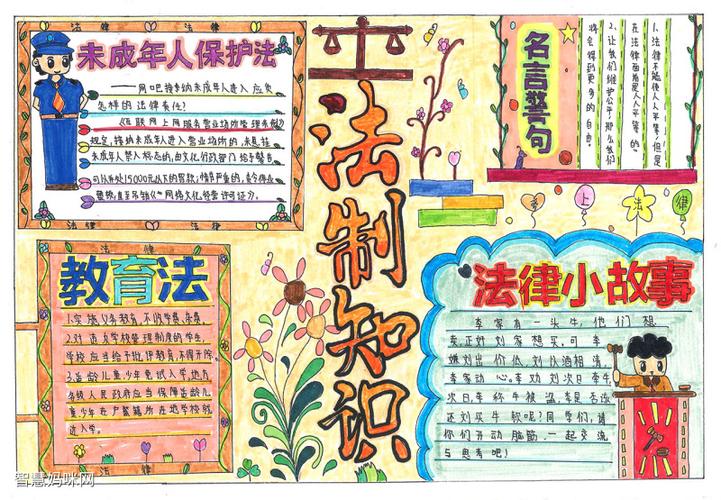 法 律 法 律
未成年人保护法
——网吧接纳未成年人进入应负
怎样的法律责任？
《互联网上网服务营业场所管理条例》
规定，接纳未成年人进入营业场所的，未悬挂
未成年人禁入标志的，由文化行政部门给予警告
可以并处15000元以下的罚款；情节严重的，责令停业
整顿，直至吊销《网络文化经营许可证》。
法 律 法 律
法制知识
名言警句
1.法律不能使人人平等，但是
在法律面前是人人平等的。
2.让我们维护公平，那么我们
将会得到更多的自由。
学 上 法 律
法 律
教育法
1.实施义务教育，不收学费、杂费。
2.对违反学校管理制度的学生，
学校应当给予批评教育，不得开除。
3.适龄儿童少年免试入学，地方
各级人民政府应当保障适龄儿
童少年在户籍所在地学校就
近入学。
法 律
法律小故事
李家有一头牛，他们想
卖，正好刘家想买。可李
嫌刘出价低，刘以酒相清，
李家动心。李劝刘次日牵牛，
次日李称牛被盗，李是否该
还刘买牛款呢？同学们，请
你们开动脑筋，一起交流
与思考吧！
智慧妈咪网